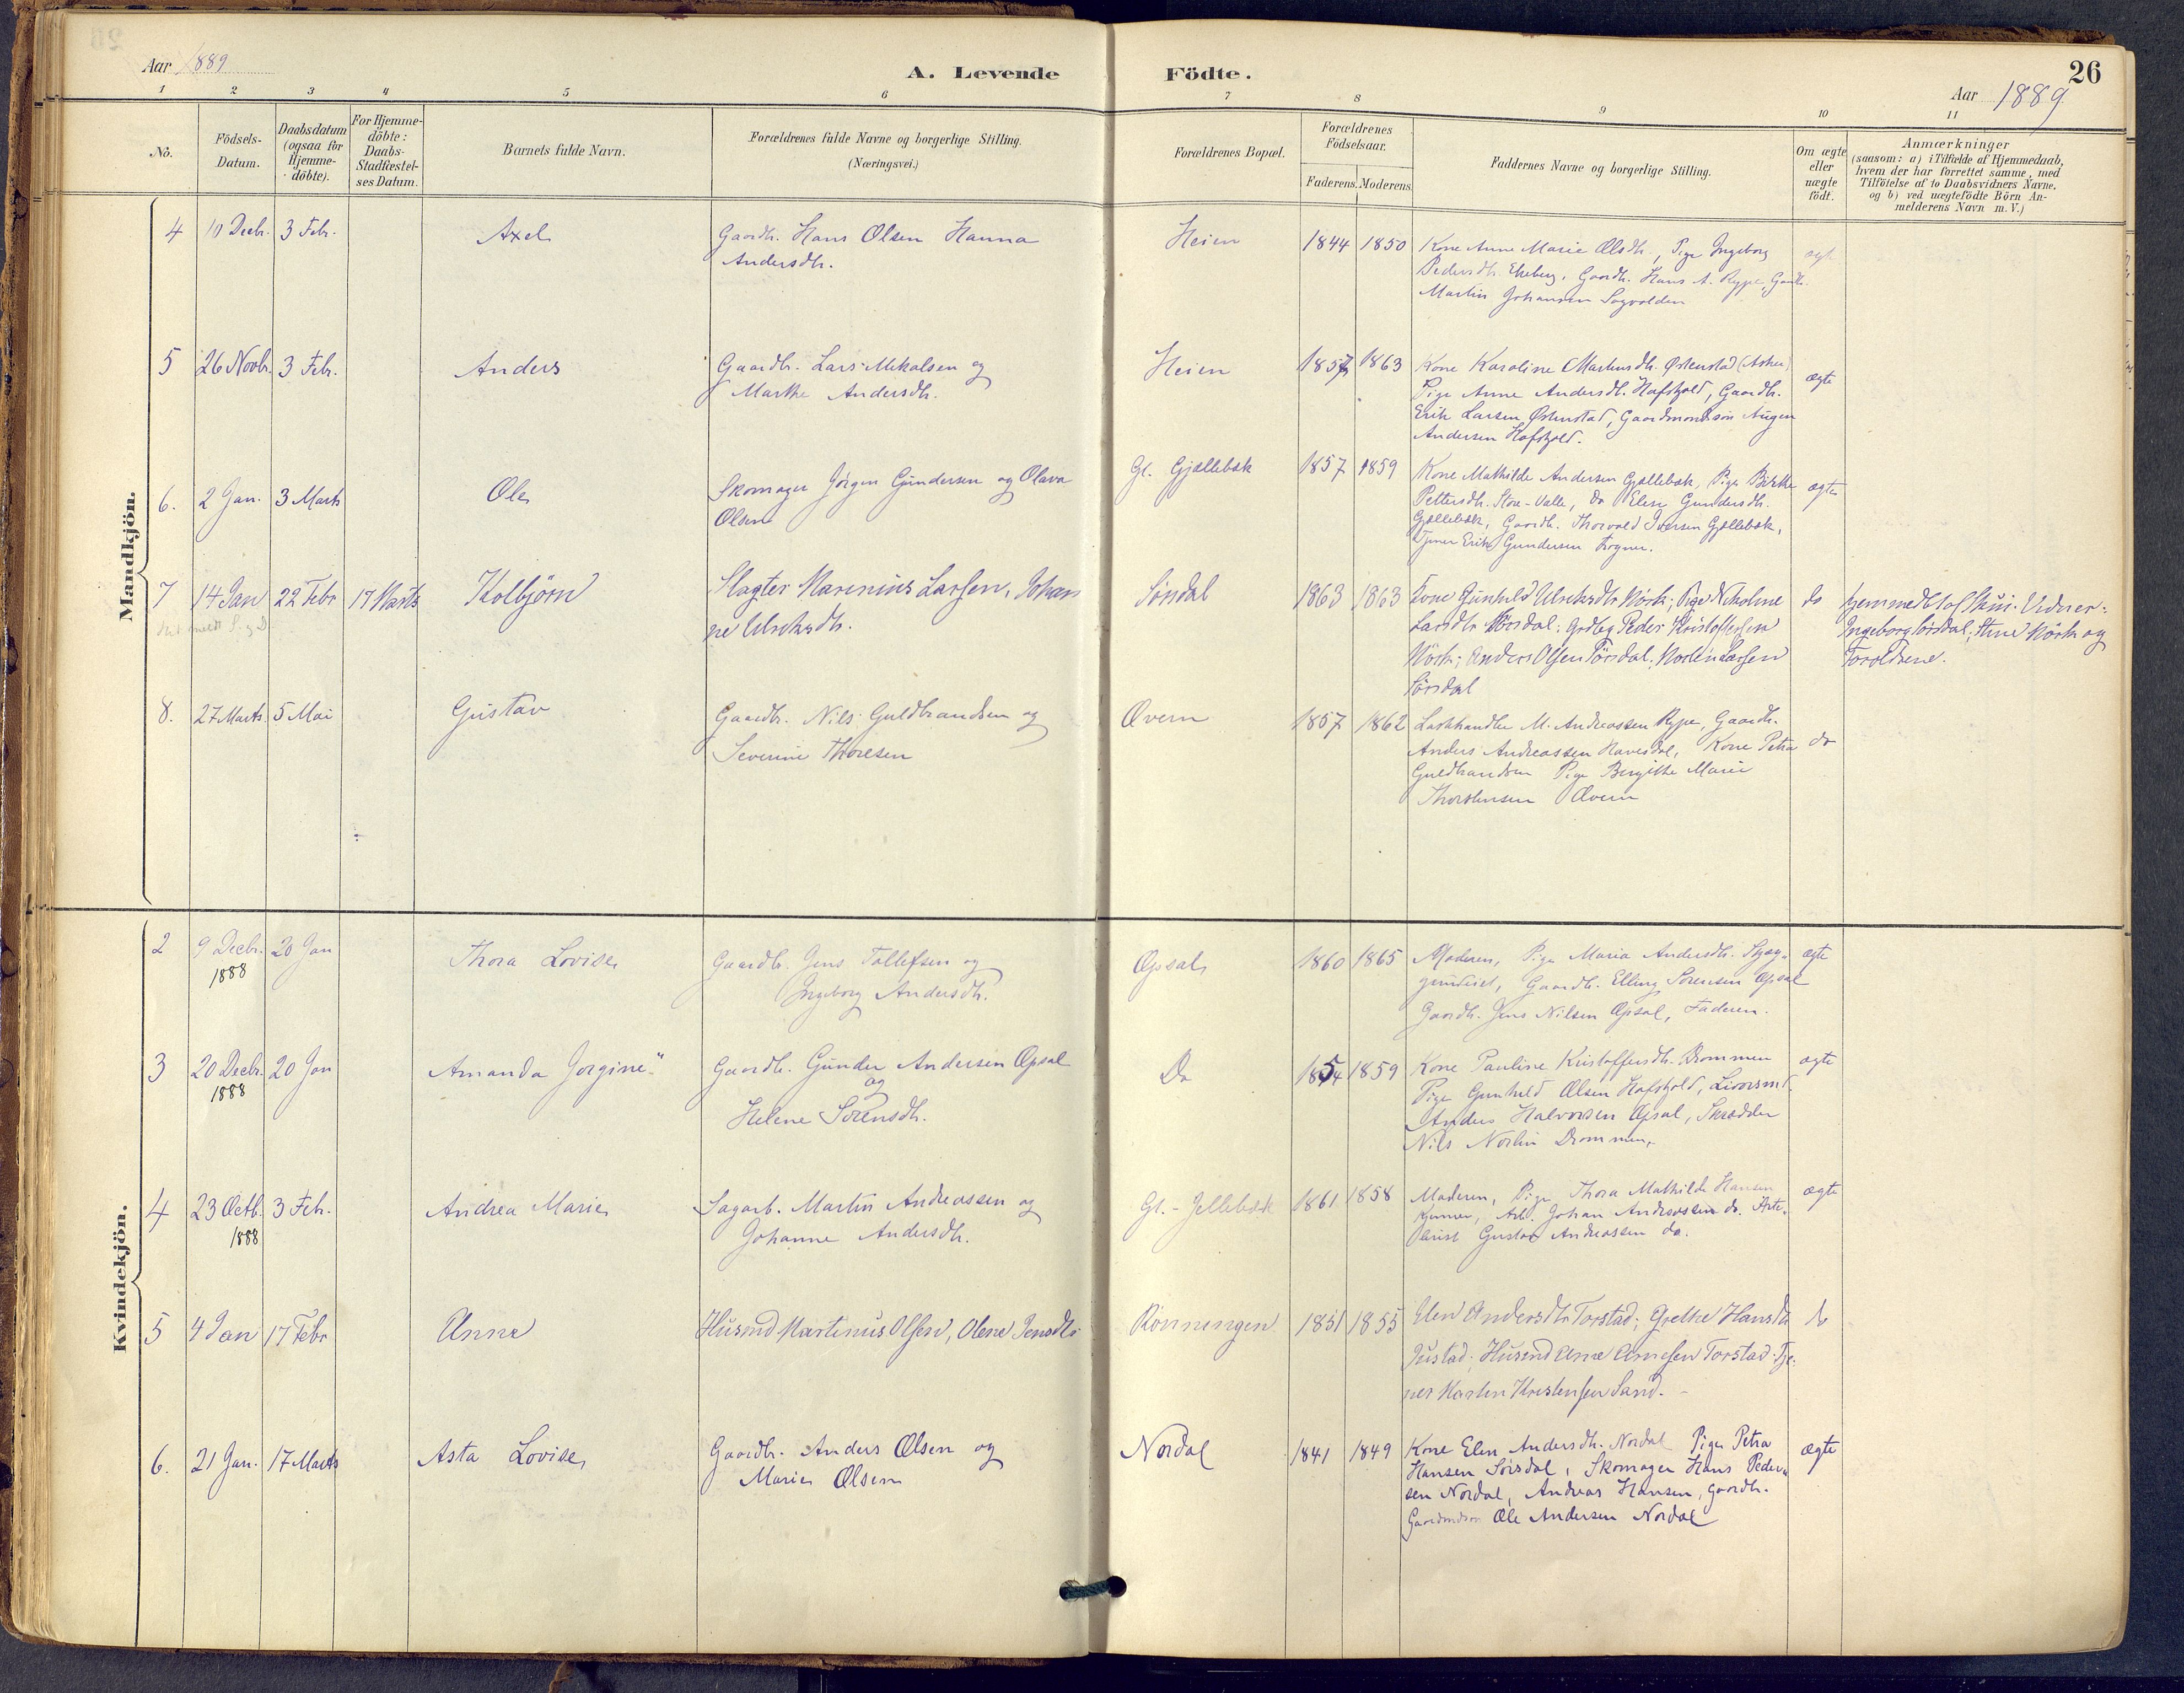 Aar 1889
A. Levende
Födte.
26
Aar 1889
1 2 3 4 5 6 7 8 9 10 11
No.
Födsels-
Datum.
Daabsdatum
(ogsaa for
Hjemme-
döbte).
For Hjemme-
döbte:
Daabs-
Stadfæstel-
ses Datum.
Barnets fulde Navn.
Forældrenes fulde Navne og borgerlige Stilling.
(Næringsvei.)
Forældrenes Bopæl.
Forældrenes
Födselsaar.
Faderens. Moderens.
Faddernes Navne og borgerlige Stilling.
Om ægte
eller
uægte
födt.
Anmærkninger
(saasom: a) i Tilfælde af Hjemmedaab,
hvem der har forrettet samme, med
Tilföielse af to Daabsvidners Navne,
og b) ved uægtefödte Börn An-
melderens Navn m. V.)
Mandkjön.
4 10 Decbr. 3 Febr. Axel
Gaardbr. Hans Olsen Hanna
Andersdtr.
Heien 1844 1850
Kone Anne Marie Olsdtr, Pige Ingeborg
Pedersdtr. Ekeberg, Gaardbr. Hans A. Rype, Gaardbr.
Martin Johansen Sogvolden
ægt
5 26 Novbr. 3 Febr. Anders
Gaardbr. Lars Mikalsen og
Marthe Andersdtr.
Heien 1857 1863
Kone Karoline Østenstad (Asker)
Pige Anne Andersdtr. Hafskjold, Gaardbr.
Erik Larsen Østenstad, Gaardmandssön August
Andersen Hafskjold.
ægte
6. 2 Jan. 3 Marts Ole
Skomager Jörgen Gundersen og Olava
Olsen
Gl. Gjællebæk 1857 1859
Kone Mathilde Andersen Gjællebæk, Pige Berthe
Pettersdtr. Store-Valle, do Elen Gundersdtr.
Gjællebæk, Gaardbr. Thorvald Iversen Gjællebæk,
Tjener Erik Gundersen
ægte
7 14 Jan 22 Febr 17 Marts Kolbjörn
Slagter Marinius Larssen, Johan
ne Ulriksdtr.
Sørsdal 1863 1863
Kone Gunhild Ulriksdtr Mörk; Pige Nikoline
Larsdtr Sørsdal; Grdbrg Peder Kristoffersen
Mörk; Anders Olssen Sørsdal, Martin Larssen
Sørsdal
do
hjemmedbt af Vidner:
Ingeborg Sørsdal; Stine Mörk og
Forældrene.
8. 27 Marts. 5 Mai Gustav
Gaardbr. Nils Guldbrandsen og
Severine Thoresen
Overn 1857 1862
Lasthandler M. Andreassen Rype, Gaardbr.
Anders Andreassen Haversdal, Kone Petra
Guldbrandsen Pige Bergithe Marie
Thorstensen Overn
do
Kvindekjön.
2 9 Decbr. 20 Jan Thora Lovise
1888
Gaardbr. Jens Tollefsen og
Ingeborg Andersdtr.
Opsal 1860 1865
Moderen, Pige Maria Andersdtr.
Gaardbr. Elling Sörensen Opsal
Gaardbr. Jens Nilsen Opsal, Faderen.
ægte
3 20 Decbr. 20 Jan Amanda Jorgine
1888
Gaardbr. Gunder Andersen Opsal
og
Helene Sörensdtr.
Do 1854 1859
Kone Pauline Kristoffersdtr. Drammen
Pige Gunhild Olsen Hafskjold,
Anders Halvorsen Opsal, Skrædder
Nils Norlin Drammen.
ægte
4 23 Octb. 3 Feb. Andrea Marie
1888
Sagarb. Martin Andreassen og
Johanne Andersdtr.
Gl.- Jellebæk 1861 1858
Moderen, Pige Thora Mathilde Hansen
Arb. Johan Andreassen do.
Gustav Andreassen do.
ægte
5 4 Jan 17 Febr Anna
Husmd Martinus Olssen, Olene Jensdtr
Rønningen 1851 1855
Elen Andersdtr Torstad; Grethe Hansdtr
Justad; Husmd Arne Arnesen Torstad. Tje-
ner Martin Kristensen Sand.
do
6. 21 Jan. 17 Marts Asta Lovise
Gaardbr. Anders Olsen og
Marie Olsen
Nordal 1841 1849
Kone Elen Andersdtr. Nordal Pige Petra
Hansen Sørsdal, Skomager Hans Peder-
sen Nordal, Andreas Hansen, Gaardbr.
Gaardmdsön Ole Andersen Nordal
ægte